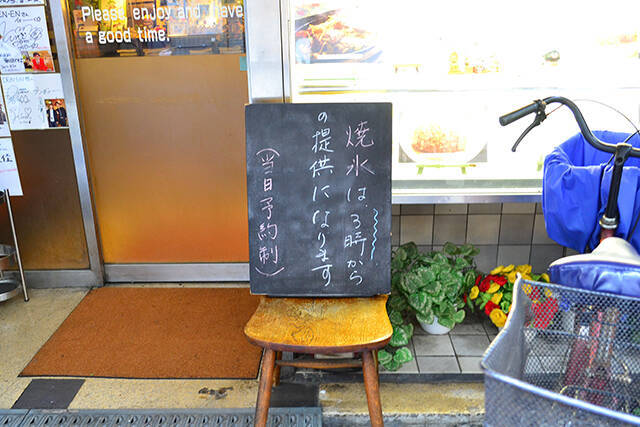 Please enjoy and have
a good time.
焼氷は、3時から
の提供になります
(当日予約制)